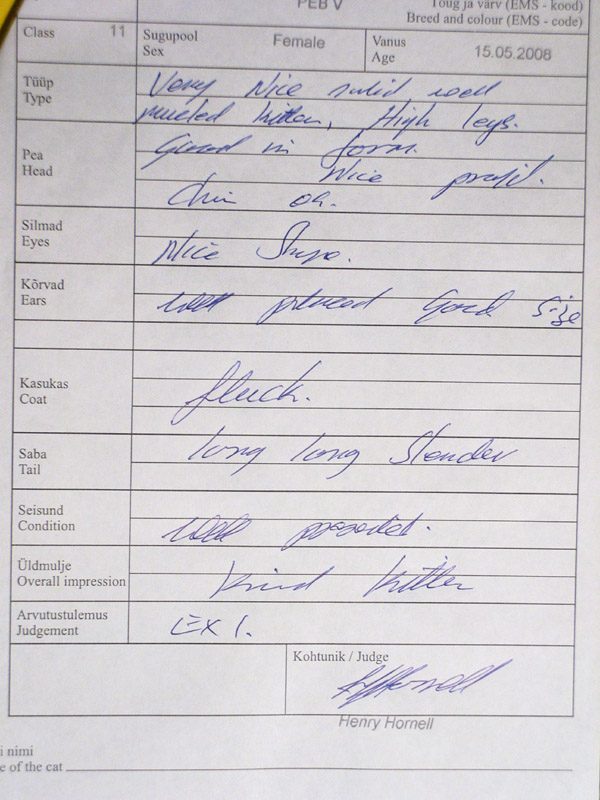 PEB V
Tõug ja värv (EMS - kood)
Breed and colour (EMS - code)
Class 11
Sugupool
Sex
Female
Vanus
Age
15.05.2008
Tüüp
Type
Very Nice solid well
kitten, High legs.
Pea
Head
Good in form.
Nice profil.
Chin ok.
Silmad
Eyes
Nice Shape.
Kõrvad
Ears
Well placed Good Size
Kasukas
Coat
Saba
Tail
long long Slender
Seisund
Condition
Well
Üldmulje
Overall impression
Kind Kitten
Arvutustulemus
Judgement
EX 1.
Kohtunik / Judge
Henry Hornell
i nimi
e of the cat